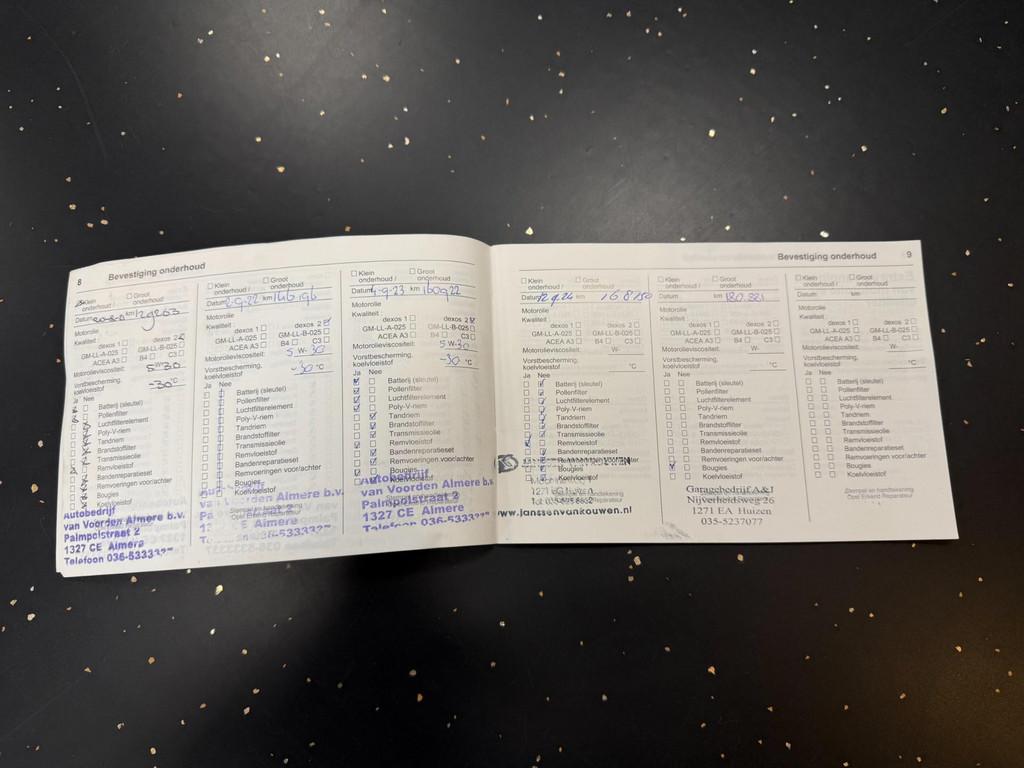 8 Bevestiging onderhoud
Klein onderhoud / Groot onderhoud
Datum km 129263
Motorolie
Kwaliteit
dexos 1 dexos 2
GM-LL-A-025 GM-LL-B-025
ACEA A3 B4 C3
Motorolieviscositeit: 5 W-30
Vorstbescherming, koelvloeistof -30 °C
Ja Nee
Batterij (sleutel)
Pollenfilter
Luchtfilterelement
Poly-V-riem
Tandriem
Brandstoffilter
Transmissieolie
Remvloeistof
Bandenreparatieset
Remvoeringen voor/achter
Bougies
Koelvloeistof
Autobedrijf
van Voorden Almere b.v.
Palmpolstraat 2
1327 CE Almere
Telefoon 036-5333
Klein onderhoud / Groot onderhoud
Datum 2-9-22 km 146.196
Motorolie
Kwaliteit :
dexos 1 dexos 2
GM-LL-A-025 GM-LL-B-025
ACEA A3 B4 C3
Motorolieviscositeit: 5 W-30
Vorstbescherming, koelvloeistof -30 °C
Ja Nee
Batterij (sleutel)
Pollenfilter
Luchtfilterelement
Poly-V-riem
Tandriem
Brandstoffilter
Transmissieolie
Remvloeistof
Bandenreparatieset
Remvoeringen voor/achter
Bougies
Koelvloeistof
Almere b.v.
Klein onderhoud / Groot onderhoud
Datum 4-9-23 km 160922
Motorolie
Kwaliteit:
dexos 1 dexos 2
GM-LL-A-025 GM-LL-B-025
ACEA A3 B4 C3
Motorolieviscositeit: 5 W-30
Vorstbescherming, koelvloeistof -30 °C
Ja Nee
Batterij (sleutel)
Pollenfilter
Luchtfilterelement
Poly-V-riem
Tandriem
Brandstoffilter
Transmissieolie
Remvloeistof
Bandenreparatieset
Remvoeringen voor/achter
Bougies
Koelvloeistof
Autobedrijf
van Voorden Almere b.v.
Palmpolstraat 2
1327 CE Almere
Telefoon 036-5333
Bevestiging onderhoud 9
Klein onderhoud / Groot onderhoud
Datum 12.9.24 km 168150
Motorolie
Kwaliteit:
dexos 1 dexos 2
GM-LL-A-025 GM-LL-B-025
ACEA A3 B4 C3
Motorolieviscositeit: W-
Vorstbescherming, koelvloeistof °C
Ja Nee
Batterij (sleutel)
Pollenfilter
Luchtfilterelement
Poly-V-riem
Tandriem
Brandstoffilter
Transmissieolie
Remvloeistof
Bandenreparatieset
Remvoeringen voor/achter
Bougies
Koelvloeistof
1271 Huizen
www.janssenvankouwen.nl
Klein onderhoud / Groot onderhoud
Datum km 180.221
Motorolie
Kwaliteit:
dexos 1 dexos 2
GM-LL-A-025 GM-LL-B-025
ACEA A3 B4 C3
Motorolieviscositeit: W-
Vorstbescherming, koelvloeistof °C
Ja Nee
Batterij (sleutel)
Pollenfilter
Luchtfilterelement
Poly-V-riem
Tandriem
Brandstoffilter
Transmissieolie
Remvloeistof
Bandenreparatieset
Remvoeringen voor/achter
Bougies
Koelvloeistof
Garagebedrijf A&J
Nijverheidsweg 26
1271 EA Huizen
035-5237077
Klein onderhoud / Groot onderhoud
Datum km
Motorolie
Kwaliteit:
dexos 1 dexos 2
GM-LL-A-025 GM-LL-B-025
ACEA A3 B4 C3
Motorolieviscositeit: W-
Vorstbescherming, koelvloeistof °C
Ja Nee
Batterij (sleutel)
Pollenfilter
Luchtfilterelement
Poly-V-riem
Tandriem
Brandstoffilter
Transmissieolie
Remvloeistof
Bandenreparatieset
Remvoeringen voor/achter
Bougies
Koelvloeistof
Stempel en handtekening
Opel Erkend Reparateur